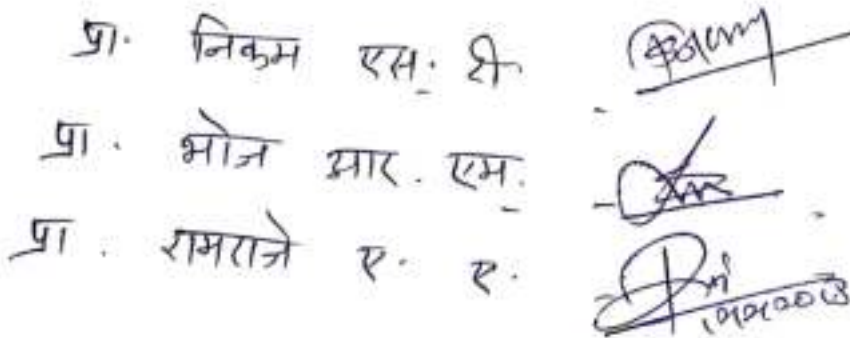 प्रा. निकम एस. टी.
प्रा. भोज आर. एम.
प्रा. रामराजे ए. ए.